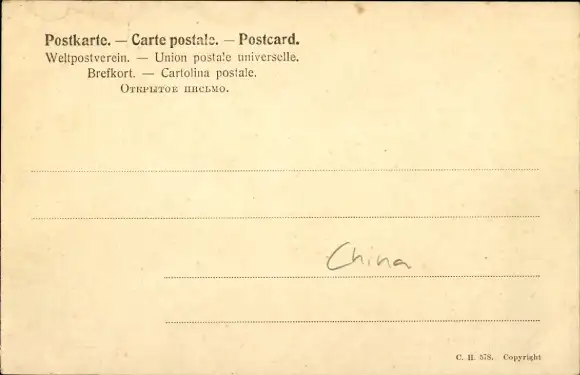 Postkarte. — Carte postale. — Postcard.
Weltpostverein. — Union postale universelle.
Brefkort. — Cartolina postale.
Открытое письмо.
China
C. H. 578. Copyright